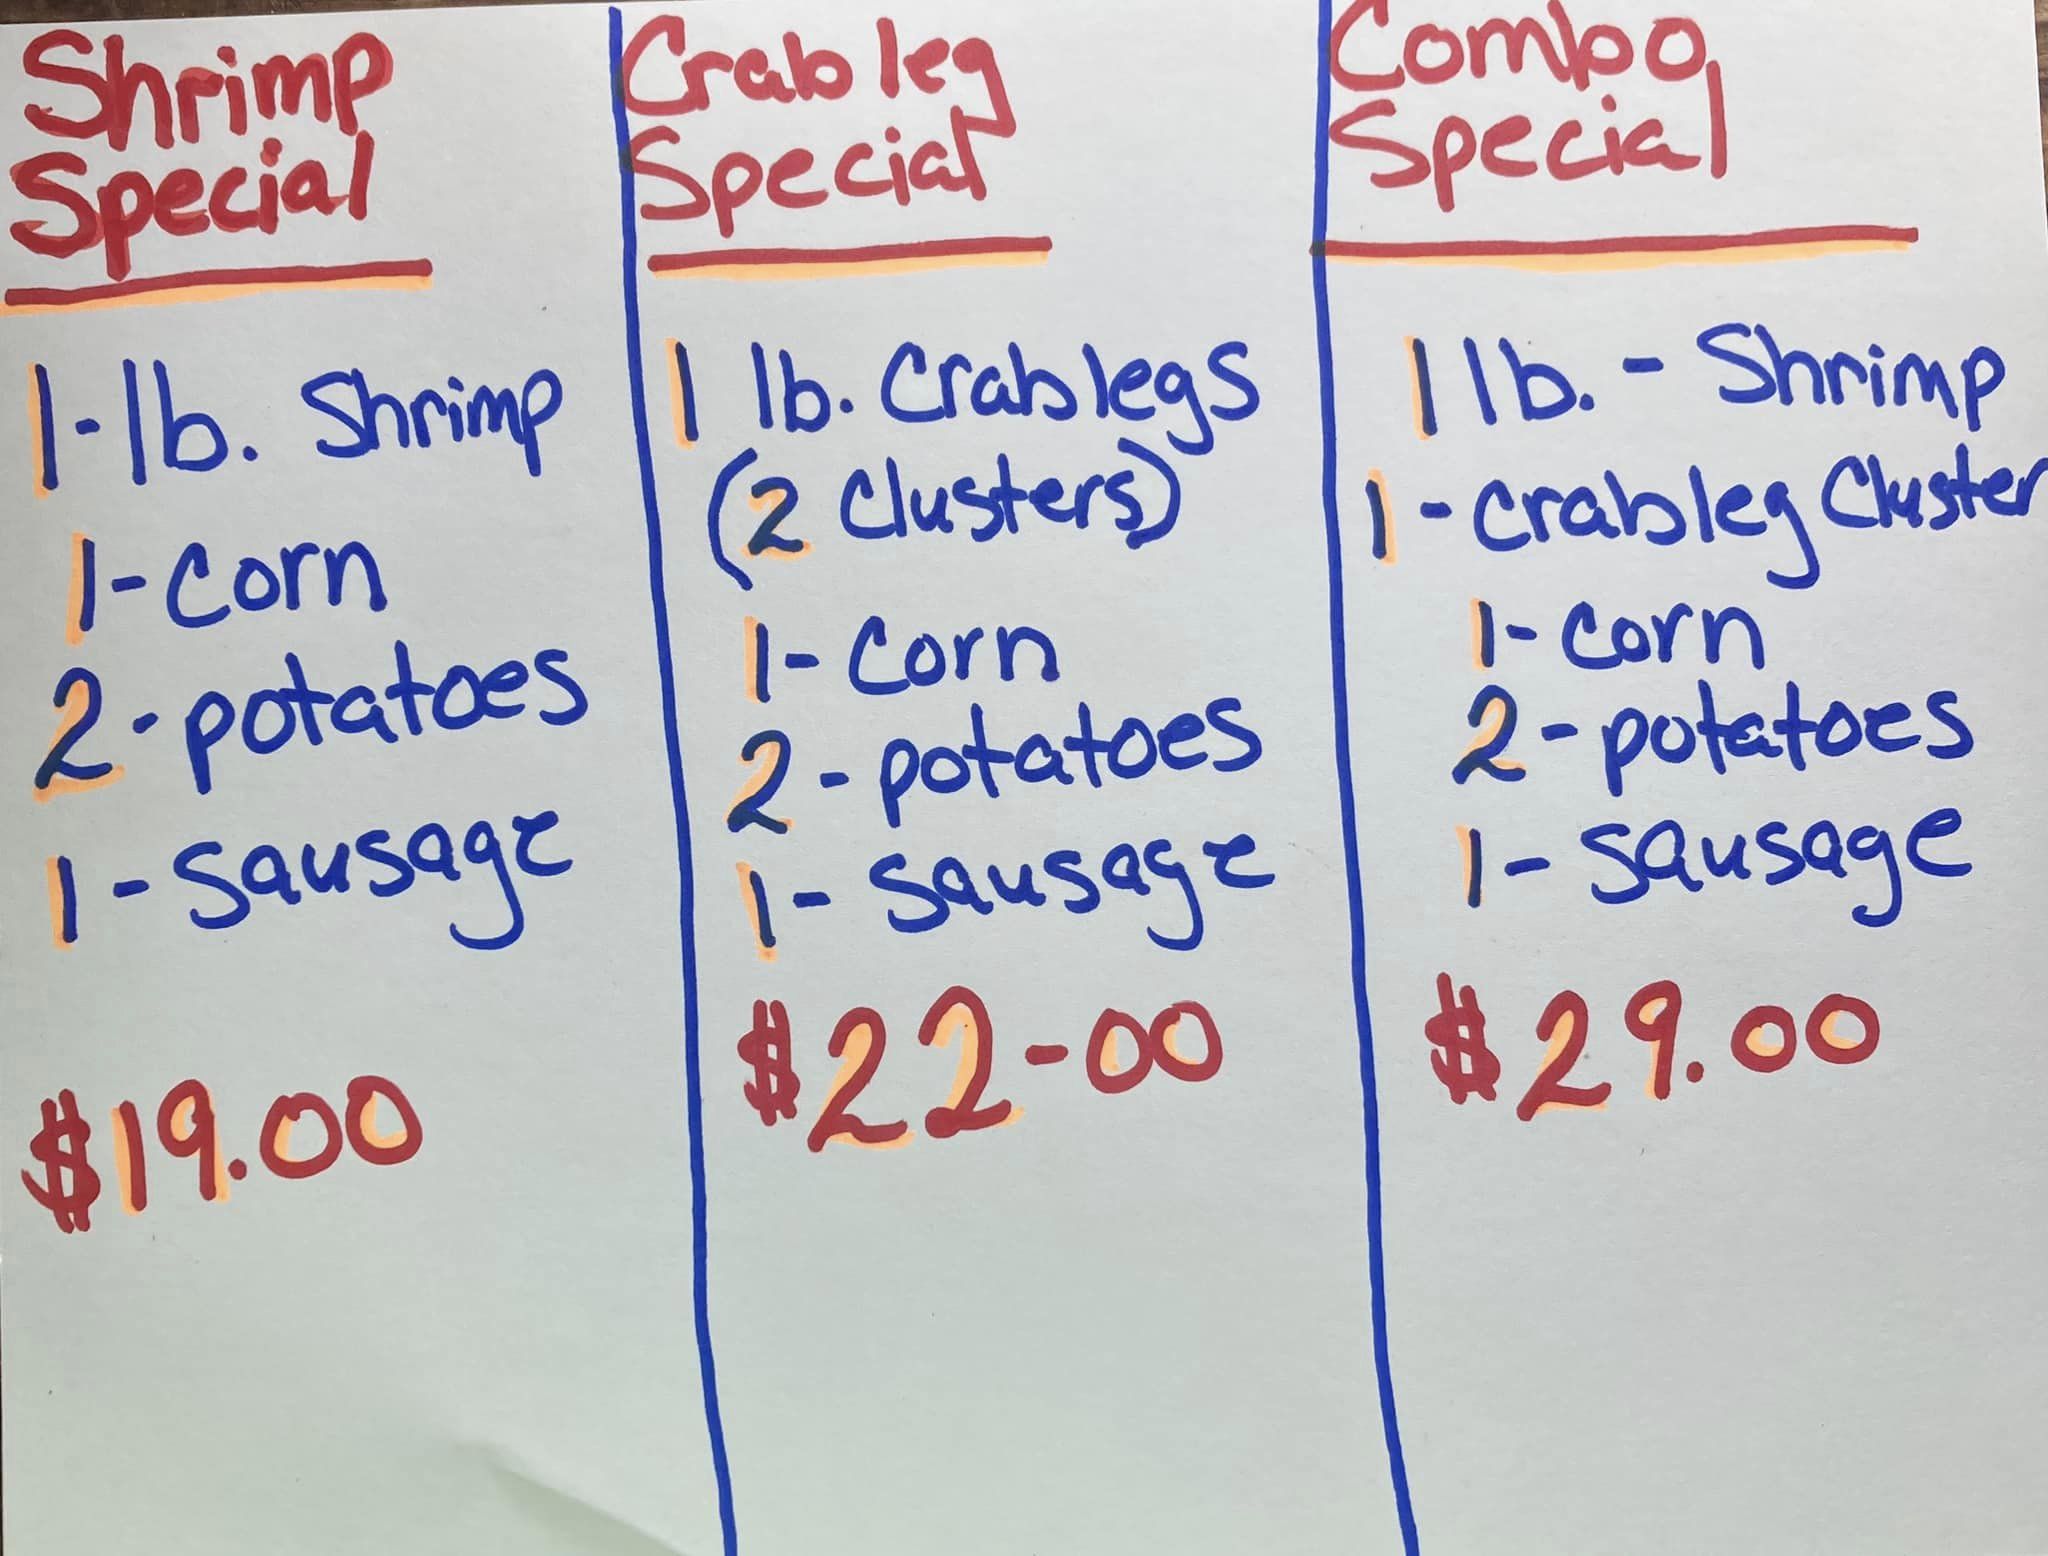 Shrimp
Special
1-lb. Shrimp
1-Corn
2-potatoes
1-Sausage
$19.00
Crab leg
Special
1 lb. Crab legs
(2 Clusters)
1-Corn
2-potatoes
1-Sausage
$22-00
Combo
Special
1 lb. - Shrimp
1-Crab leg Cluster
1-Corn
2-potatoes
1-Sausage
$29.00